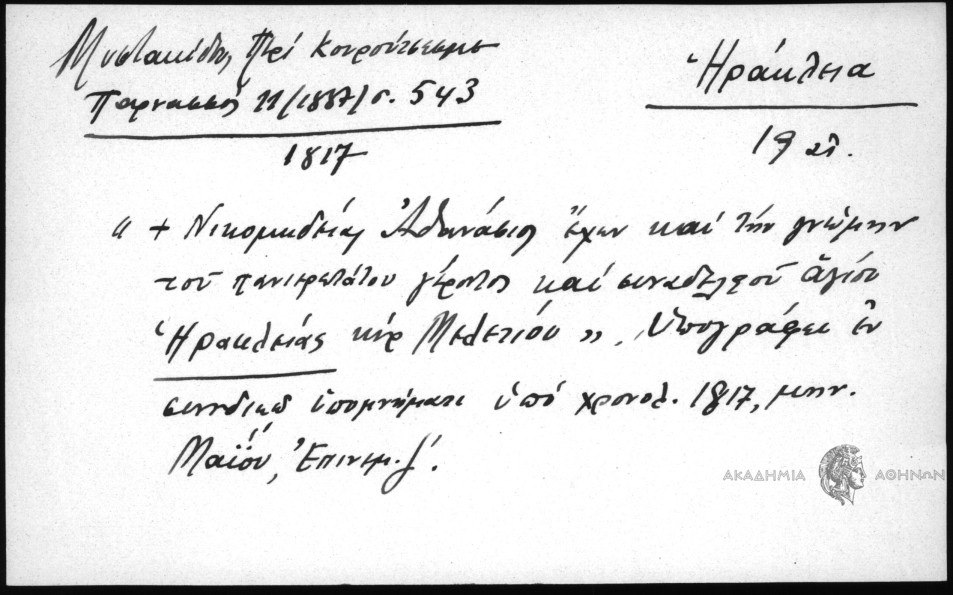 Μυστακίδης, Περὶ Κουρούτσεσμε
Παρνασσὸς 11/1887/σ. 543
1817
Ἡράκλεια
19 αἰ.
« + Νικομηδείας Ἀθανάσιος ἔχων καὶ τὴν γνώμην
τοῦ πανιερωτάτου γέροντος καὶ συναδελφοῦ ἁγίου
Ἡρακλείας κὺρ Μελετίου ». Ὑπογράφει ἐν
συνοδικῷ ὑπομνήματι ὑπὸ χρονολ. 1817, μην.
Μαΐου, Ἐπινεμ.
ΑΚΑΔΗΜΙΑ ΑΘΗΝΩΝ